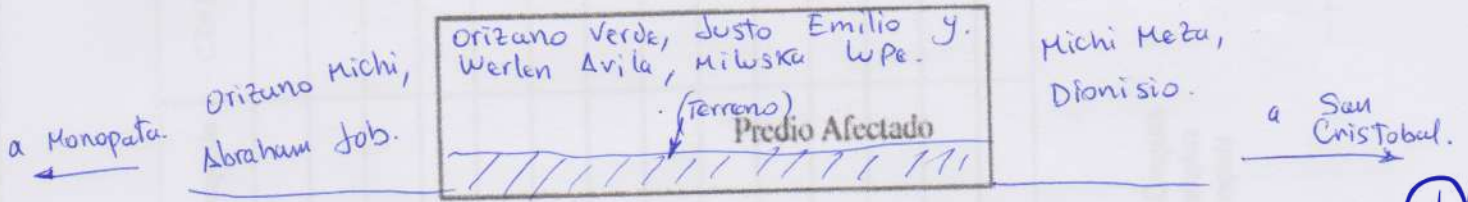 a Monopata.
Orizano Michi,
Abraham Job.
Orizano Verde, Justo Emilio y.
Werlen Avila, Miluska Lupe.
(Terreno)
Predio Afectado
Michi Meza,
Dionisio.
a San
Cristobal.
1